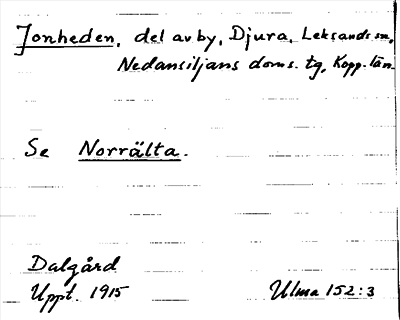 Jonheden, del av by, Djura, Leksands sn,
Nedansiljans doms. tg, Kopp. län.
Se Norrälta.
Dalgård
Uppt. 1915 Ulma 152:3